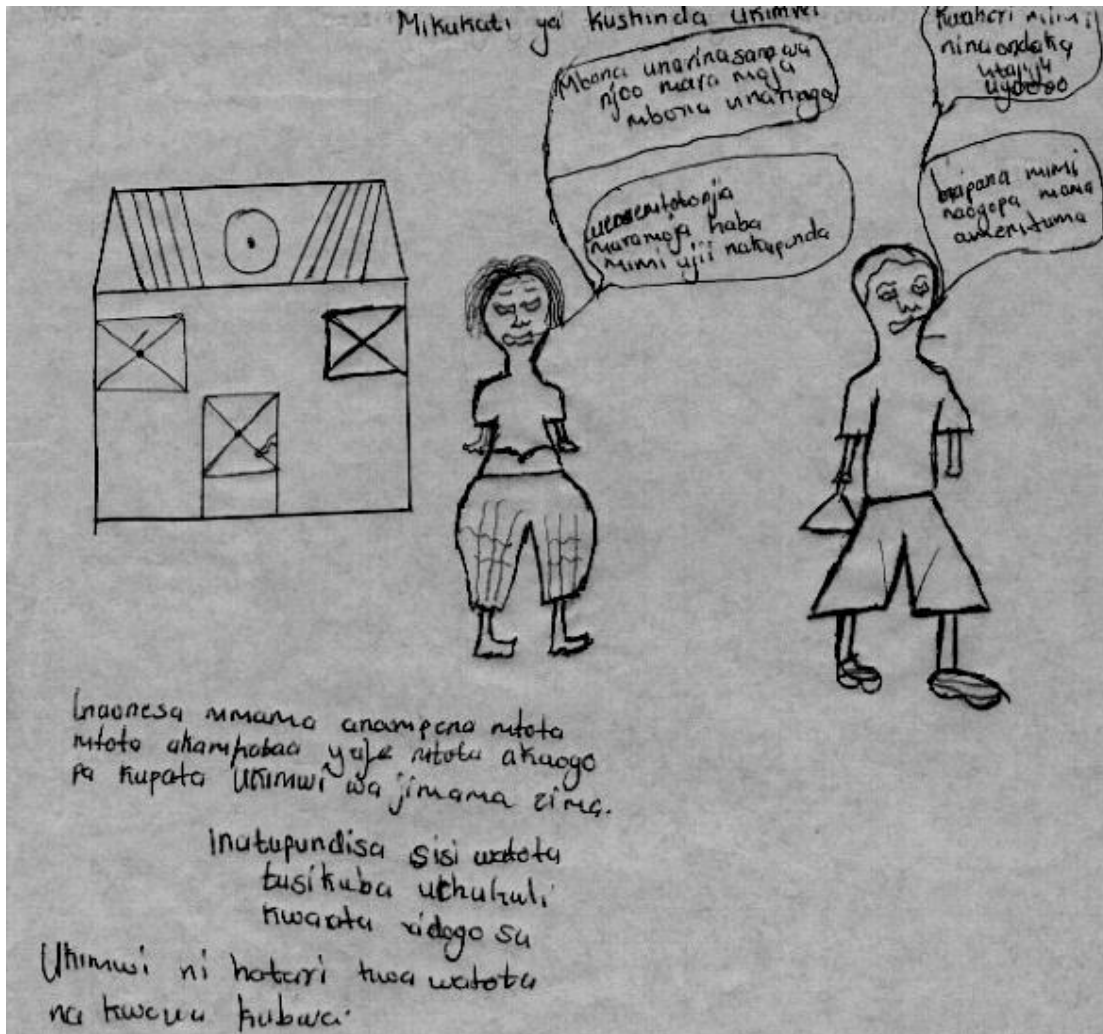 Mikukati ya kushinda UKIMWI
Mbona unarinasana wa
njoo mara moja
mbona unaringa
mtotonjia
maramoja haba
mimi ujii nakupunda
Kwaheri mimi
ninaondaka
utajiju
uyoooo
hapana mimi
naogopa mama
amenituma
Inaonesa mmama anampena mtoto
mtoto akamkataa yule mtoto akaogo
pa kupata UKIMWI wa jimama zima.
Inatupundisa sisi watota
tusikuba uchukuli
kwaata kidogo su
UKimwi ni hatari kwa watoto
na kwawa kubwa.